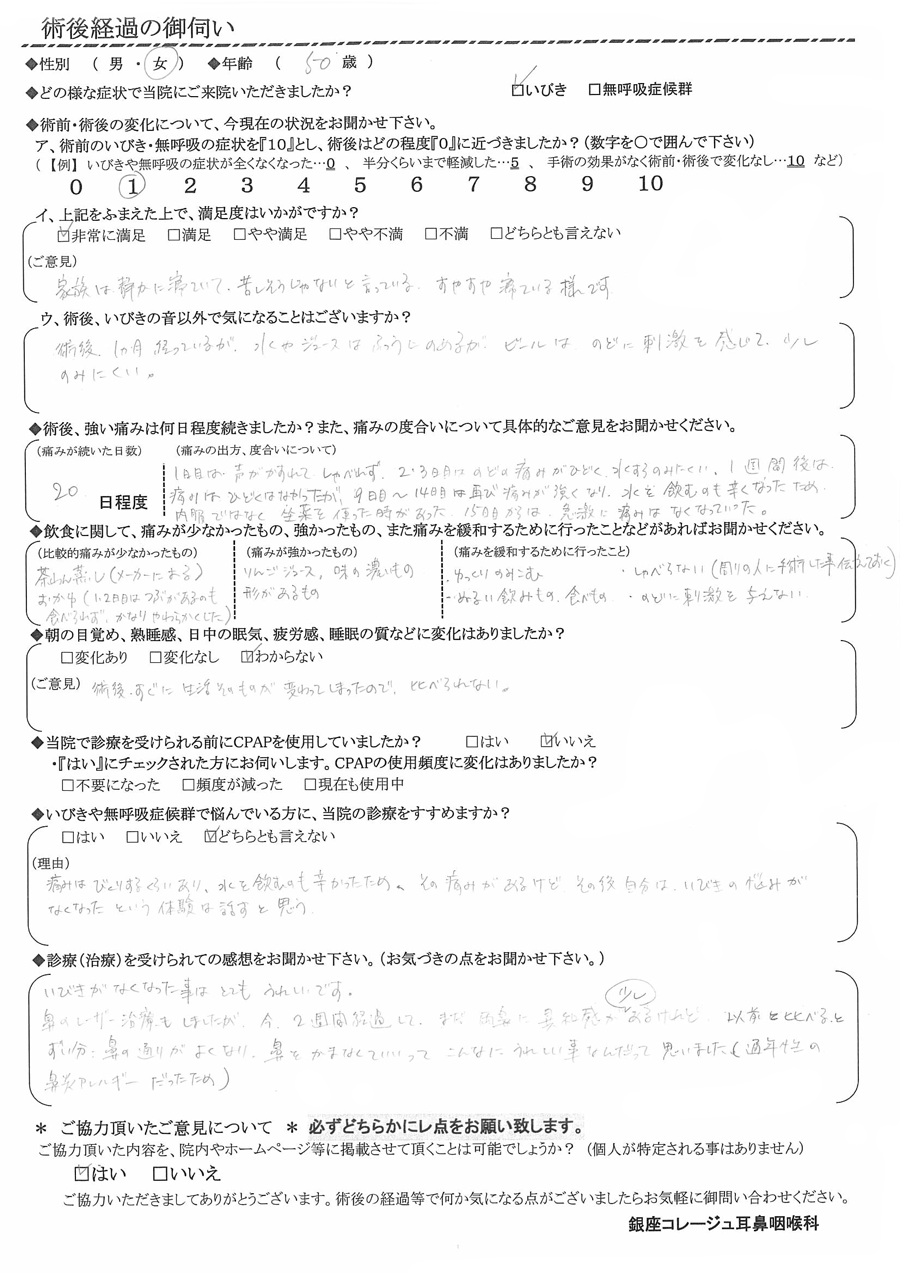 術後経過の御伺い
◆性別 ( 男 ・ 女 ) ◆年齢 ( 50 歳 )
◆どの様な症状で当院にご来院いただきましたか? ☑いびき □無呼吸症候群
◆術前・術後の変化について、今現在の状況をお聞かせ下さい。
ア、術前のいびき・無呼吸の症状を『10』とし、術後はどの程度『0』に近づきましたか?(数字を○で囲んで下さい)
(【例】いびきや無呼吸の症状が全くなくなった…0 、 半分くらいまで軽減した…5 、 手術の効果がなく術前・術後で変化なし…10 など)
0 1 2 3 4 5 6 7 8 9 10
イ、上記をふまえた上で、満足度はいかがですか?
☑非常に満足 □満足 □やや満足 □やや不満 □不満 □どちらとも言えない
(ご意見)
家族は静かに寝ていて、苦しそうじゃないと言っている。すやすや寝ている様です
ウ、術後、いびきの音以外で気になることはございますか?
術後、1ヵ月経っているが、水やジュースはふつうにのめるが、ビールは、のどに刺激を感じて、少し
のみにくい。
◆術後、強い痛みは何日程度続きましたか?また、痛みの度合いについて具体的なご意見をお聞かせください。
(痛みが続いた日数) (痛みの出方、度合いについて)
20 日程度
1日目は、声がかすれて しゃべれず、2・3日目はのどの痛みがひどく、水するのみにくい、1週間後は、
痛みは ひどくはなかったが、9日目〜14日目は再び痛みが強くなり、水を飲むのも辛くなったため、
内服ではなく、坐薬を使った時があった。15日目からは、急激に痛みはなくなっていった。
◆飲食に関して、痛みが少なかったもの、強かったもの、また痛みを緩和するために行ったことなどがあればお聞かせください。
(比較的痛みが少なかったもの) (痛みが強かったもの) (痛みを緩和するために行ったこと)
茶わん蒸し(メーカーによる)
おかゆ(1、2日目はつぶがあるのも
食べられず、かなりやわらかくした)
りんごジュース、味の濃いもの
形があるもの
・ゆっくりのみこむ ・しゃべらない(周りの人に手術した事伝えておく)
・ぬるい飲みもの、食べもの ・のどに刺激を与えない
◆朝の目覚め、熟睡感、日中の眠気、疲労感、睡眠の質などに変化はありましたか?
□変化あり □変化なし ☑わからない
(ご意見) 術後、すぐに生活そのものが変わってしまったので、比べられない。
◆当院で診療を受けられる前にCPAPを使用していましたか? □はい ☑いいえ
・『はい』にチェックされた方にお伺いします。CPAPの使用頻度に変化はありましたか?
□不要になった □頻度が減った □現在も使用中
◆いびきや無呼吸症候群で悩んでいる方に、当院の診療をすすめますか?
□はい □いいえ ☑どちらとも言えない
(理由)
痛みはびっくりするくらいあり、水を飲むのも辛かったため、その痛みがあるけど、その後自分は、いびきの悩みが
なくなったという体験は話すと思う
◆診療(治療)を受けられての感想をお聞かせ下さい。(お気づきの点をお聞かせ下さい。)
いびきがなくなった事は とても うれしいです。
鼻のレーザー治療もしましたが、今、2週間経過して、まだ 異和感が少しあるけれど、以前と比べると
ずい分、鼻の通りがよくなり、鼻をかまなくていいって こんなにうれしい事なんだって思いました(通年性の
鼻炎アレルギーだったため)
* ご協力頂いたご意見について * 必ずどちらかにレ点をお願い致します。
ご協力頂いた内容を、院内やホームページ等に掲載させて頂くことは可能でしょうか? (個人が特定される事はありません)
☑はい □いいえ
ご協力いただきましてありがとうございます。術後の経過等で何か気になる点がございましたらお気軽に御問い合わせください。
銀座コレージュ耳鼻咽喉科